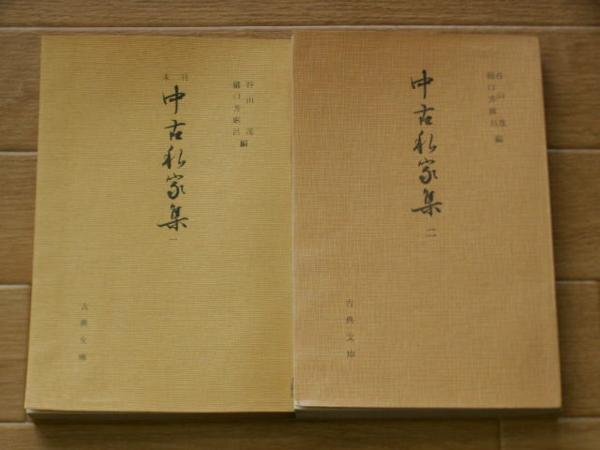 谷山茂
樋口芳麻呂 編
未刊
中古私家集
一
古典文庫
谷山茂
樋口芳麻呂 編
中古私家集
二
古典文庫